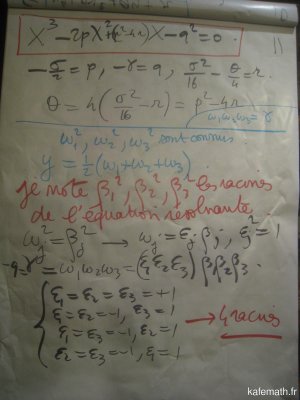 X³ - 2pX² + (p²-4r)X - q² = 0.
-σ/2 = p, -γ = q, σ²/16 - θ/4 = r.
θ = 4(σ²/16 - r) = p² - 4r
ω₁ω₂ω₃ = γ
ω₁², ω₂², ω₃² sont connus
y = 1/2(ω₁+ω₂+ω₃)
je note β₁², β₂², β₃² les racines
de l'équation résolvante
ωⱼ² = βⱼ² → ωⱼ = εⱼ βⱼ, εⱼ² = 1
-q = γ = ω₁ω₂ω₃ = (ε₁ε₂ε₃) β₁β₂β₃.
ε₁ = ε₂ = ε₃ = +1
ε₁ = ε₂ = -1, ε₃ = 1
ε₁ = ε₃ = -1, ε₂ = 1
ε₂ = ε₃ = -1, ε₁ = 1
→ 4 racines
kafemath.fr